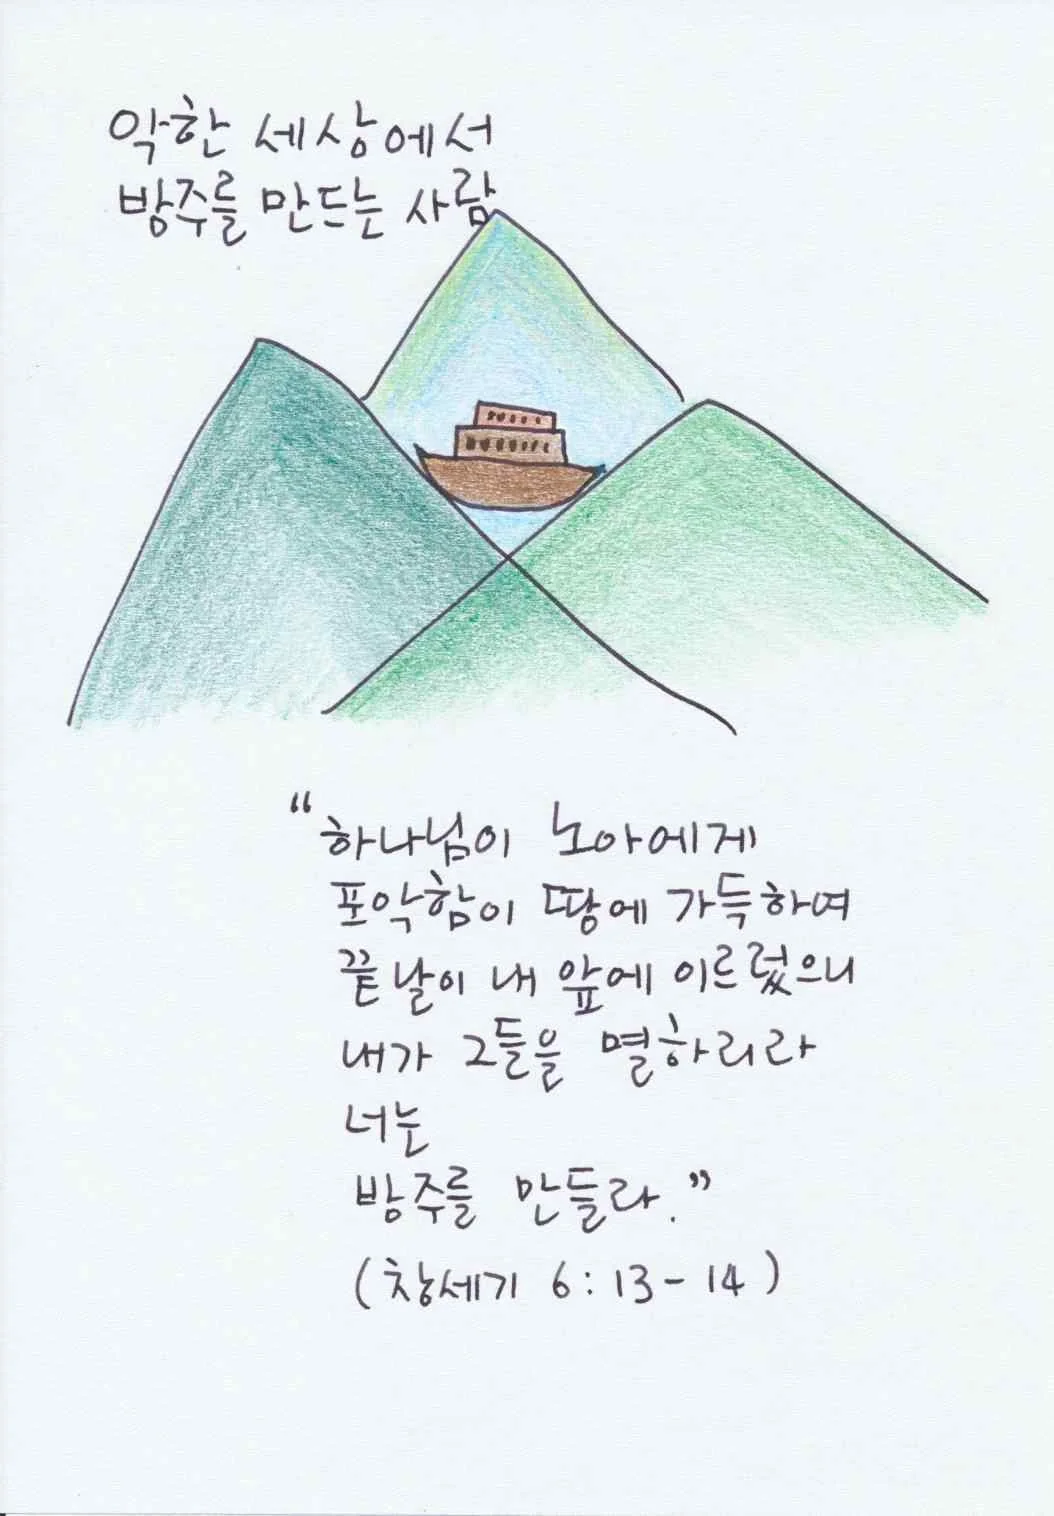 악한 세상에서
방주를 만드는 사람
"하나님이 노아에게
포악함이 땅에 가득하여
끝날이 내 앞에 이르렀으니
내가 그들을 멸하리라
너는
방주를 만들라."
(창세기 6:13-14)